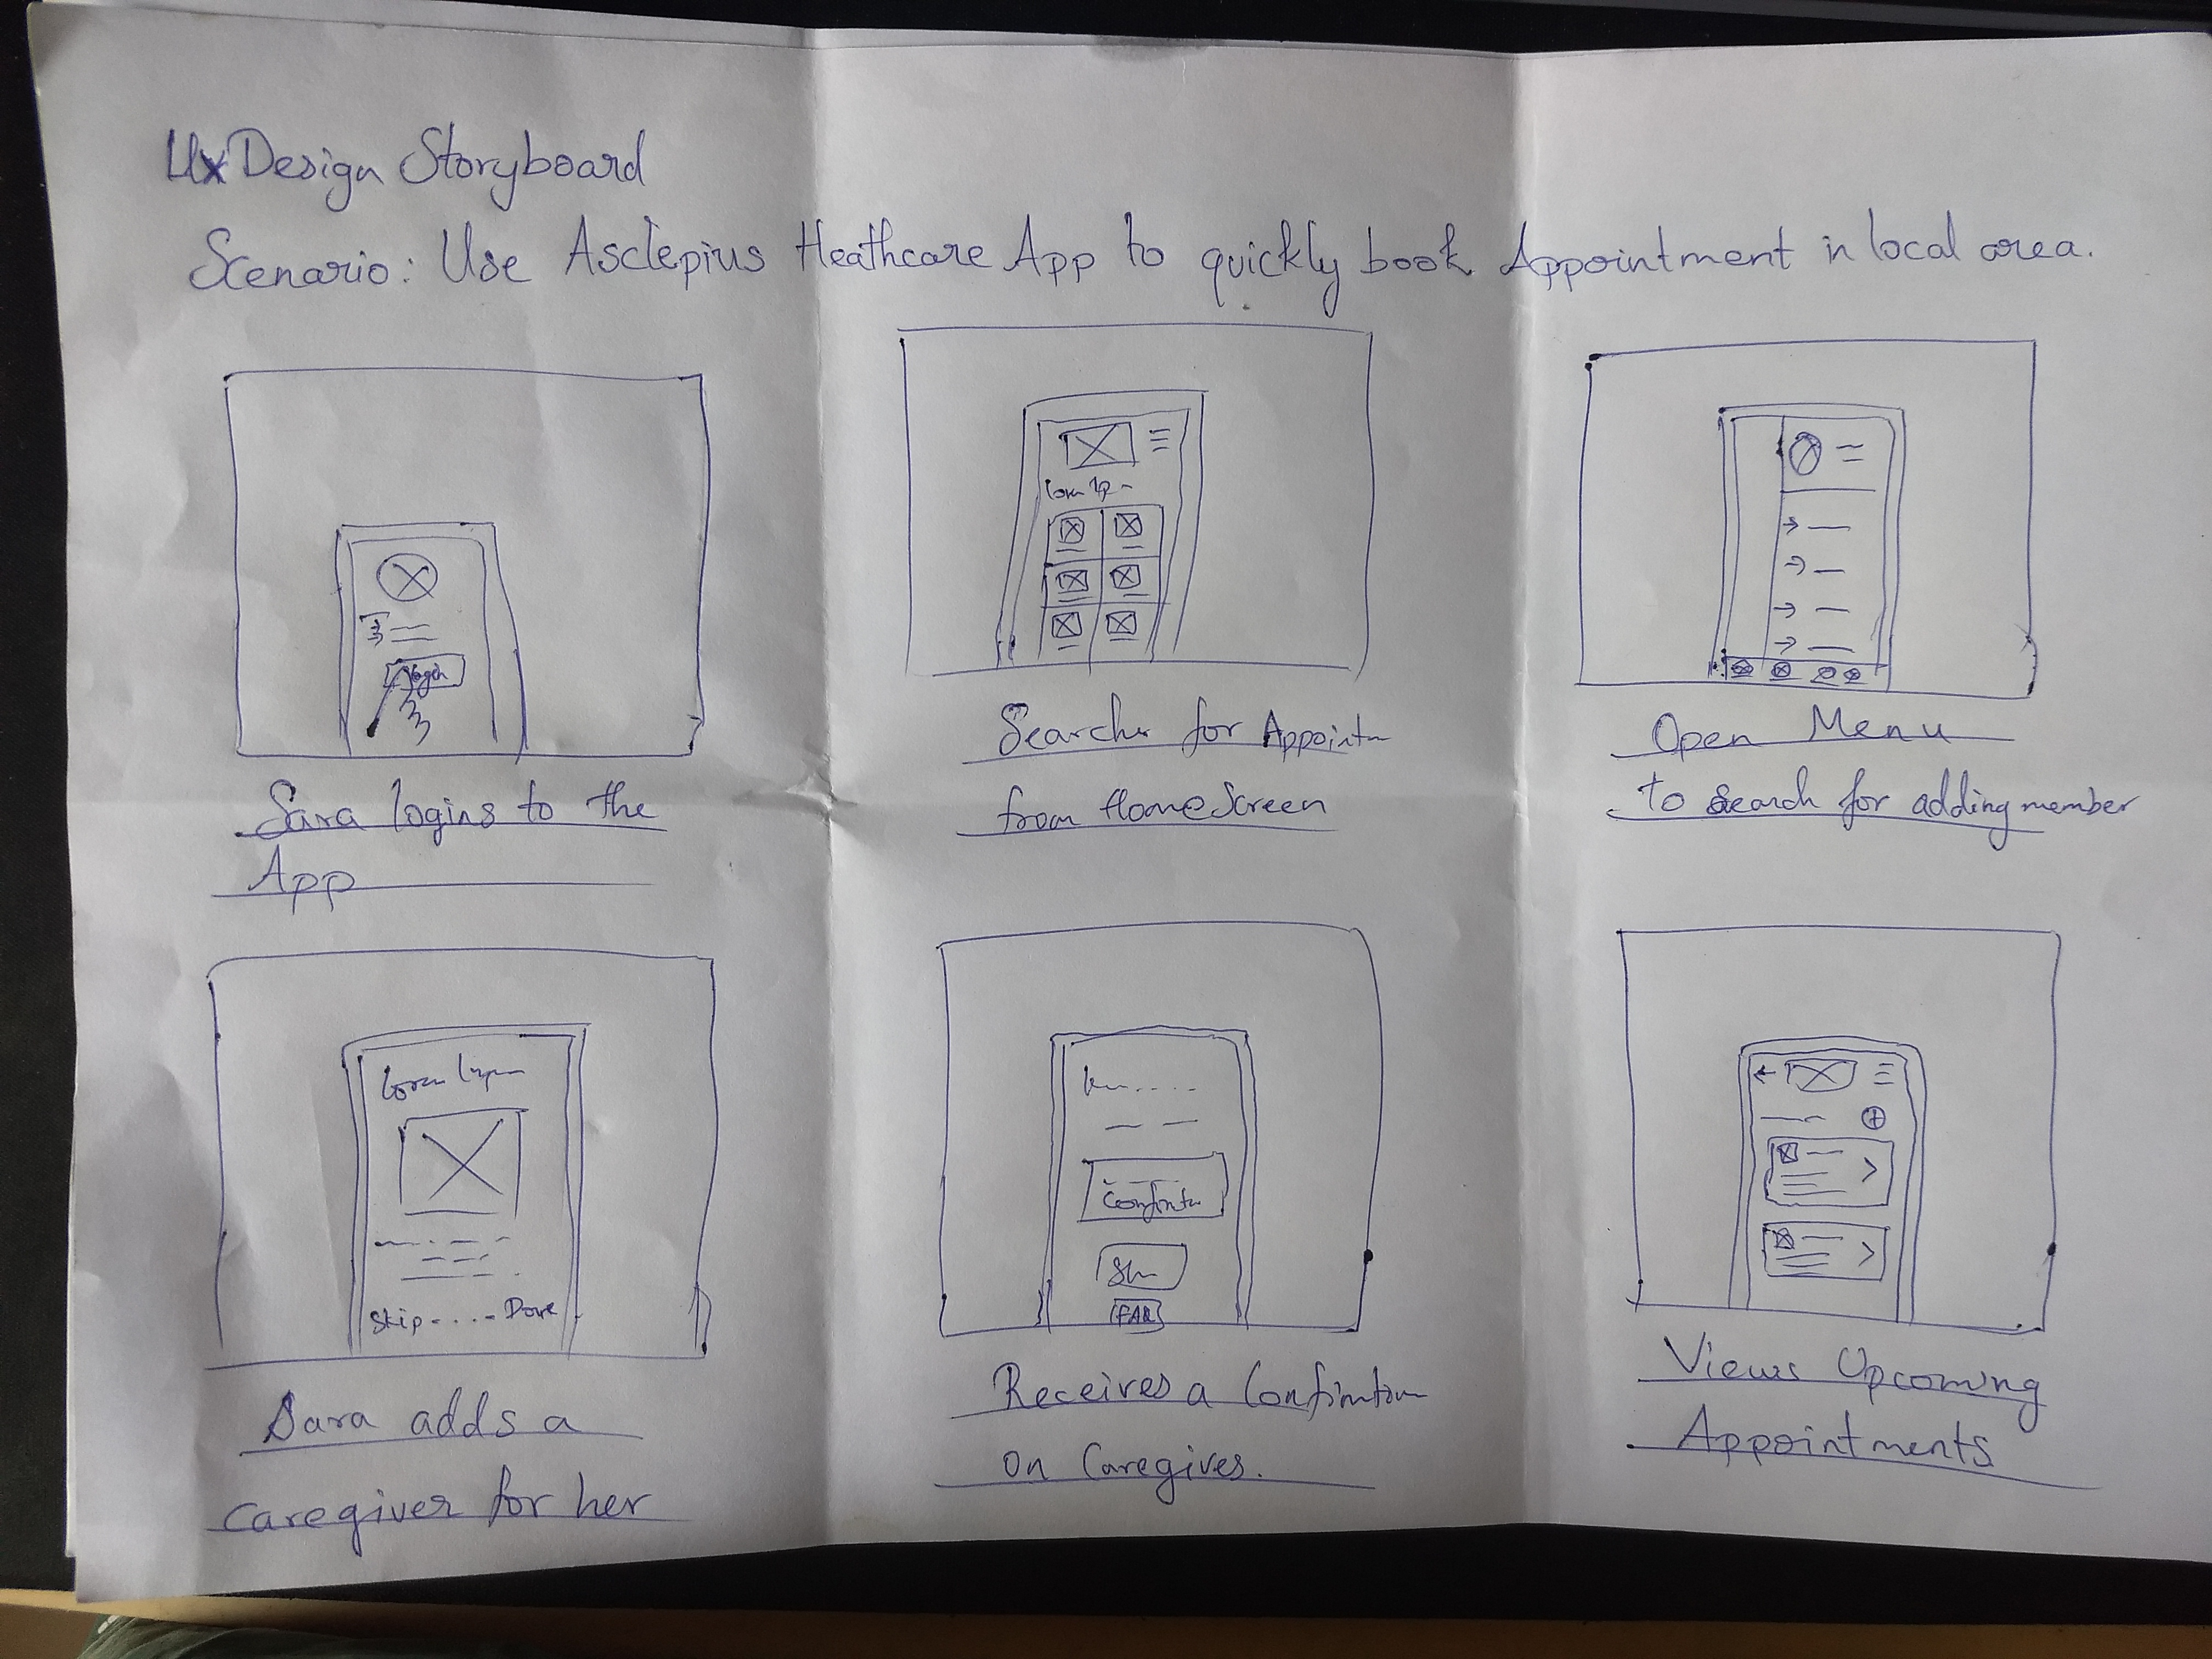 Ux Design Storyboard
Scenario: Use Asclepius Heathcare App to quickly book Appointment in local area.
login
Sara logins to the
App
Lorem Ip
Searches for Appointm
from HomeScreen
Open Menu
to Search for adding member
Lorem Ipum
Skip....Done
Sara adds a
caregiver for her
FAQ
Receives a Confirmtion
on Caregives.
Views Upcoming
Appointments